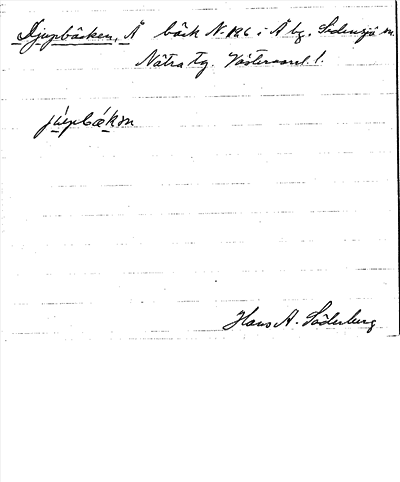 Djupbäcken, Å bäck N. 126 i Å by, Sidensjö sn.
Nätra tg. Västernorrl. l.
Hans A. Söderberg